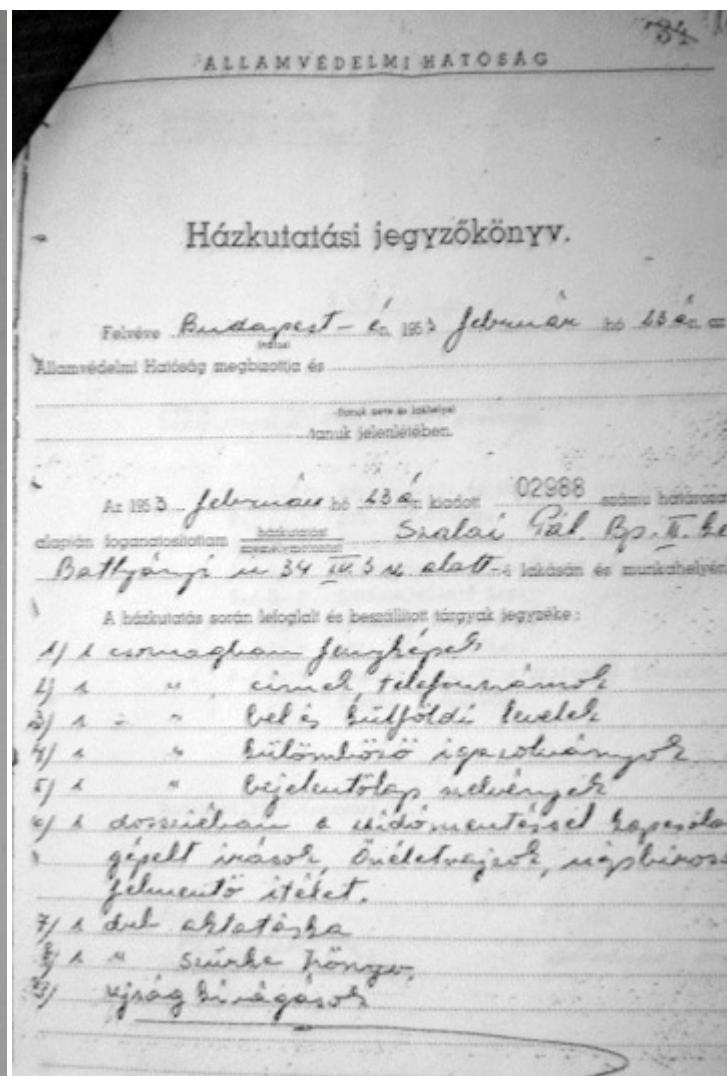 ÁLLAMVÉDELMI HATÓSÁG
Házkutatási jegyzőkönyv.
Felvéve Budapest-én 1953 február hó 23 án az
Államvédelmi Hatóság megbizottja és
tanuk neve és lakhelye
tanuk jelenlétében.
Az 1953 február hó 23 án kiadott 02988 számu
alapján foganatosítottam házkutatást Szalai Pál Bp. II.
személymotozást
Batthyányi u 34 IV 3 sz alatt-i lakásán és
A házkutatás során lefoglalt és beszállitott tárgyak jegyzéke:
1/ 1 csomagban fényképek
2/ 1 " címek, telefonszámok
3/ 1 " " bel és külföldi levelek
4/ 1 " külömböző igazolványok
5/ 1 " bejelentőlap szelvények
6/ 1 dossziéban a zsidómentéssel
gépelt irások, önéletrajzok,
felmentő itélet.
7/ 1 drb aktatáska
8/ 1 " szürke könyv,
9/ ujság kivágások